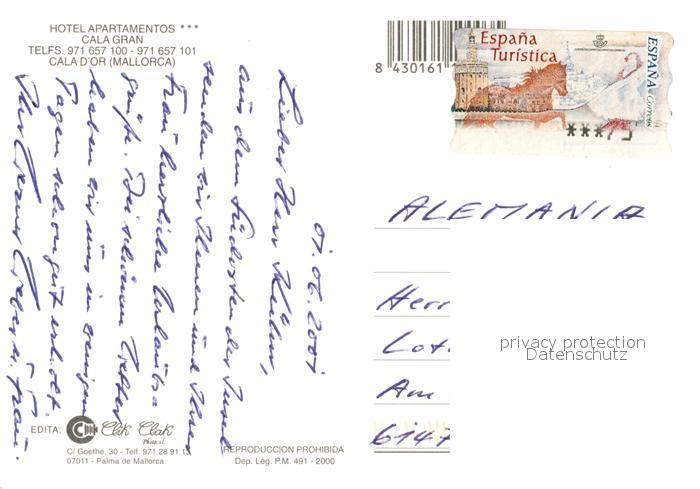 HOTEL APARTAMENTOS ***
CALA GRAN
TELFS. 971 657 100 - 971 657 101
CALA D'OR (MALLORCA)
01.06.2001
Lieber Herr
aus dem Südosten der Insel
senden wir Ihnen und Ihrer
Frau herzliche Urlaubs
grüße. Bei schönem Wetter
haben wir uns in wenigen
Tagen schon gut erholt.
Ihr Werner u. Frau.
EDITA: Clik Clak
Photo s.l.
C/ Goethe, 30 - Telf. 971 28 91 1
07011 - Palma de Mallorca
REPRODUCCION PROHIBIDA
Dep. Leg. P.M. 491 - 2000
8 430161
España
Turística
ESPAÑA
Correos
ALEMANIA
Herr
Lot
Am
6147
privacy protection
Datenschutz